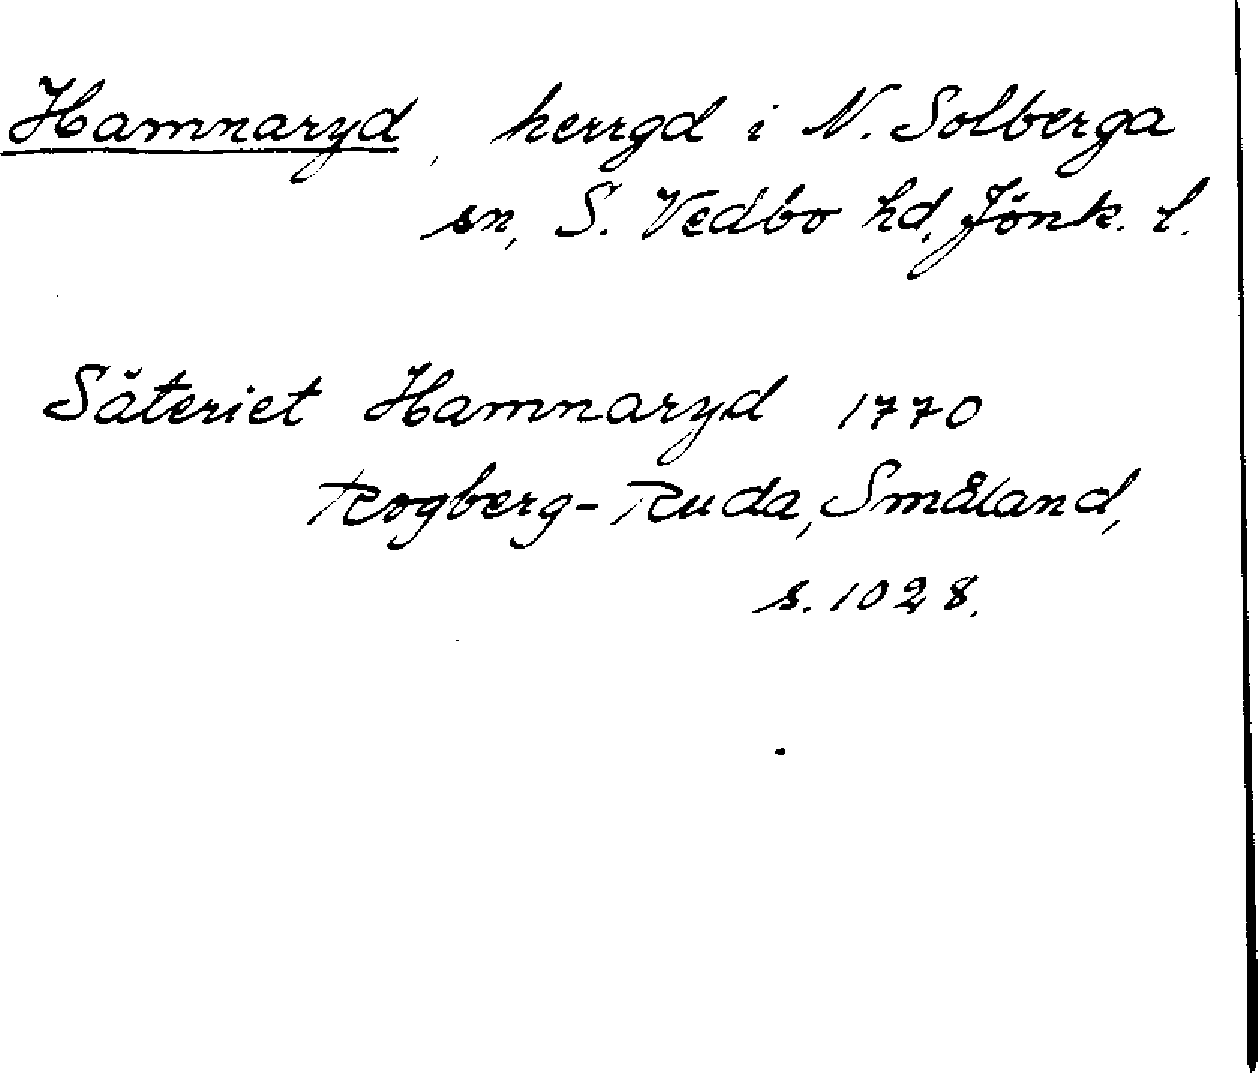 Hamnaryd, herrgd i N. Solberga
sn, S. Vedbo hd, Jönk. l.
Säteriet Hamnaryd 1770
Rogberg-Ruda, Småland,
s. 1028.